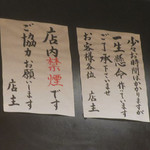 少々お時間かかりますが
一生懸命作っています
ご了承下さいませ
お客様各位
店主
店内禁煙です
ご協力お願いします
店主